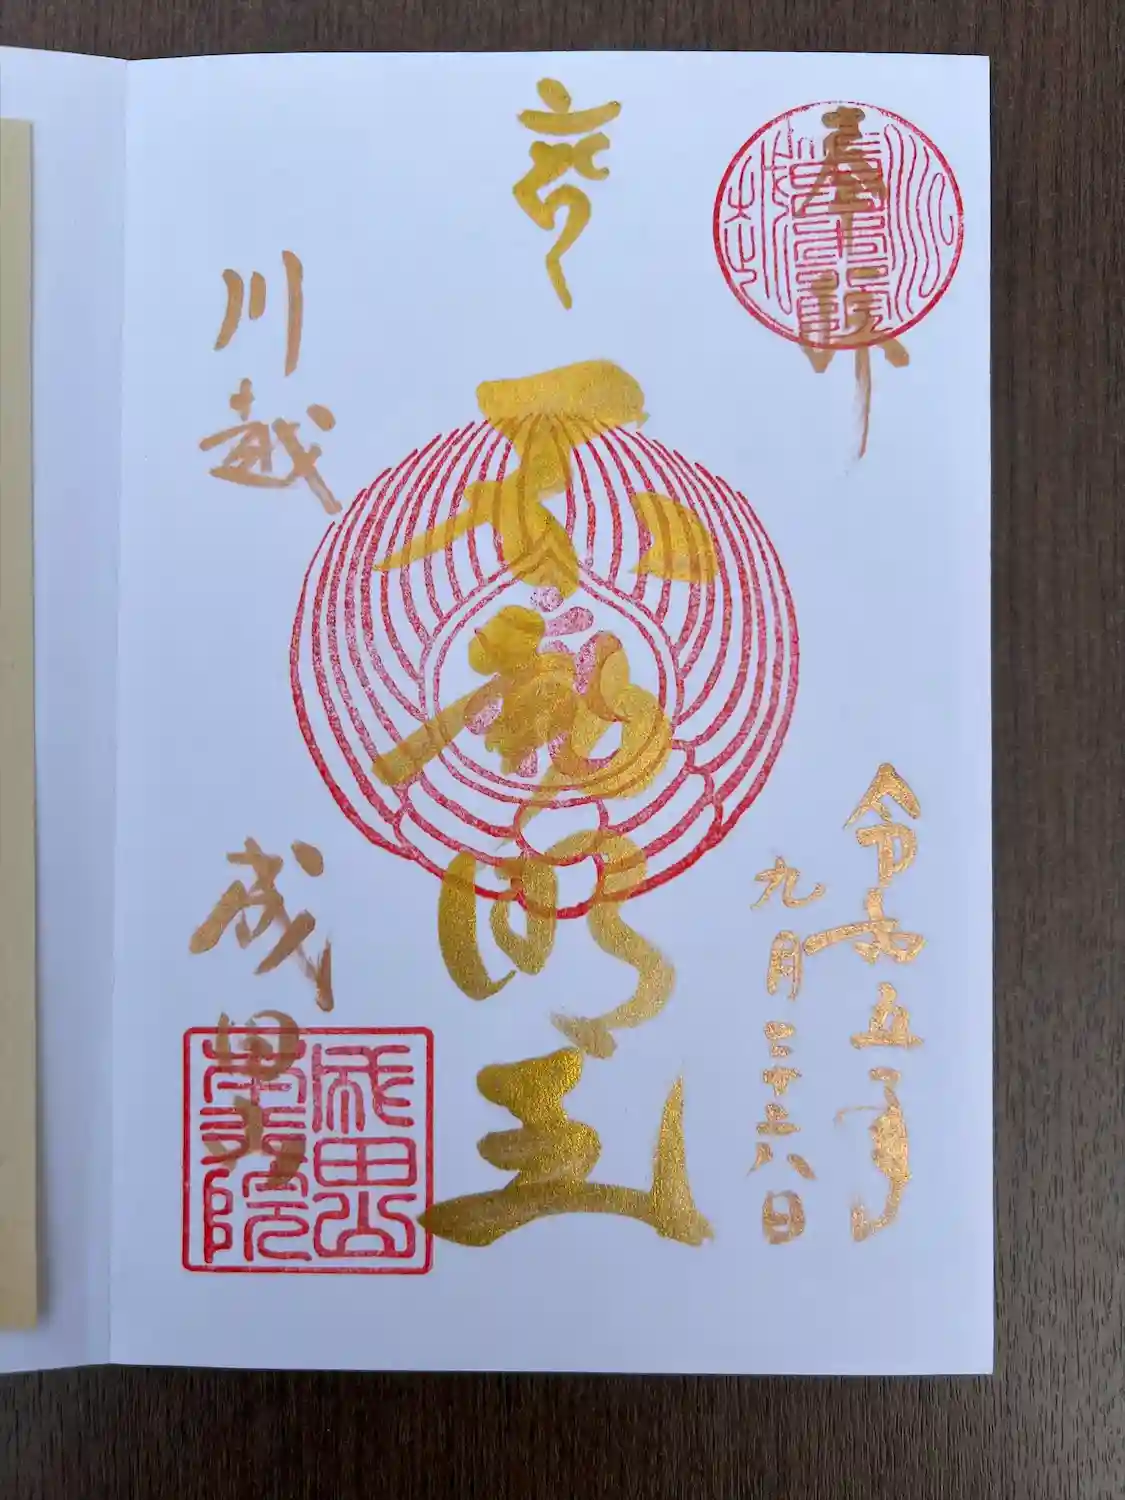 奉拝
令和五年
九月二十八日
不動明王
川越
成田山
成田山
本行院